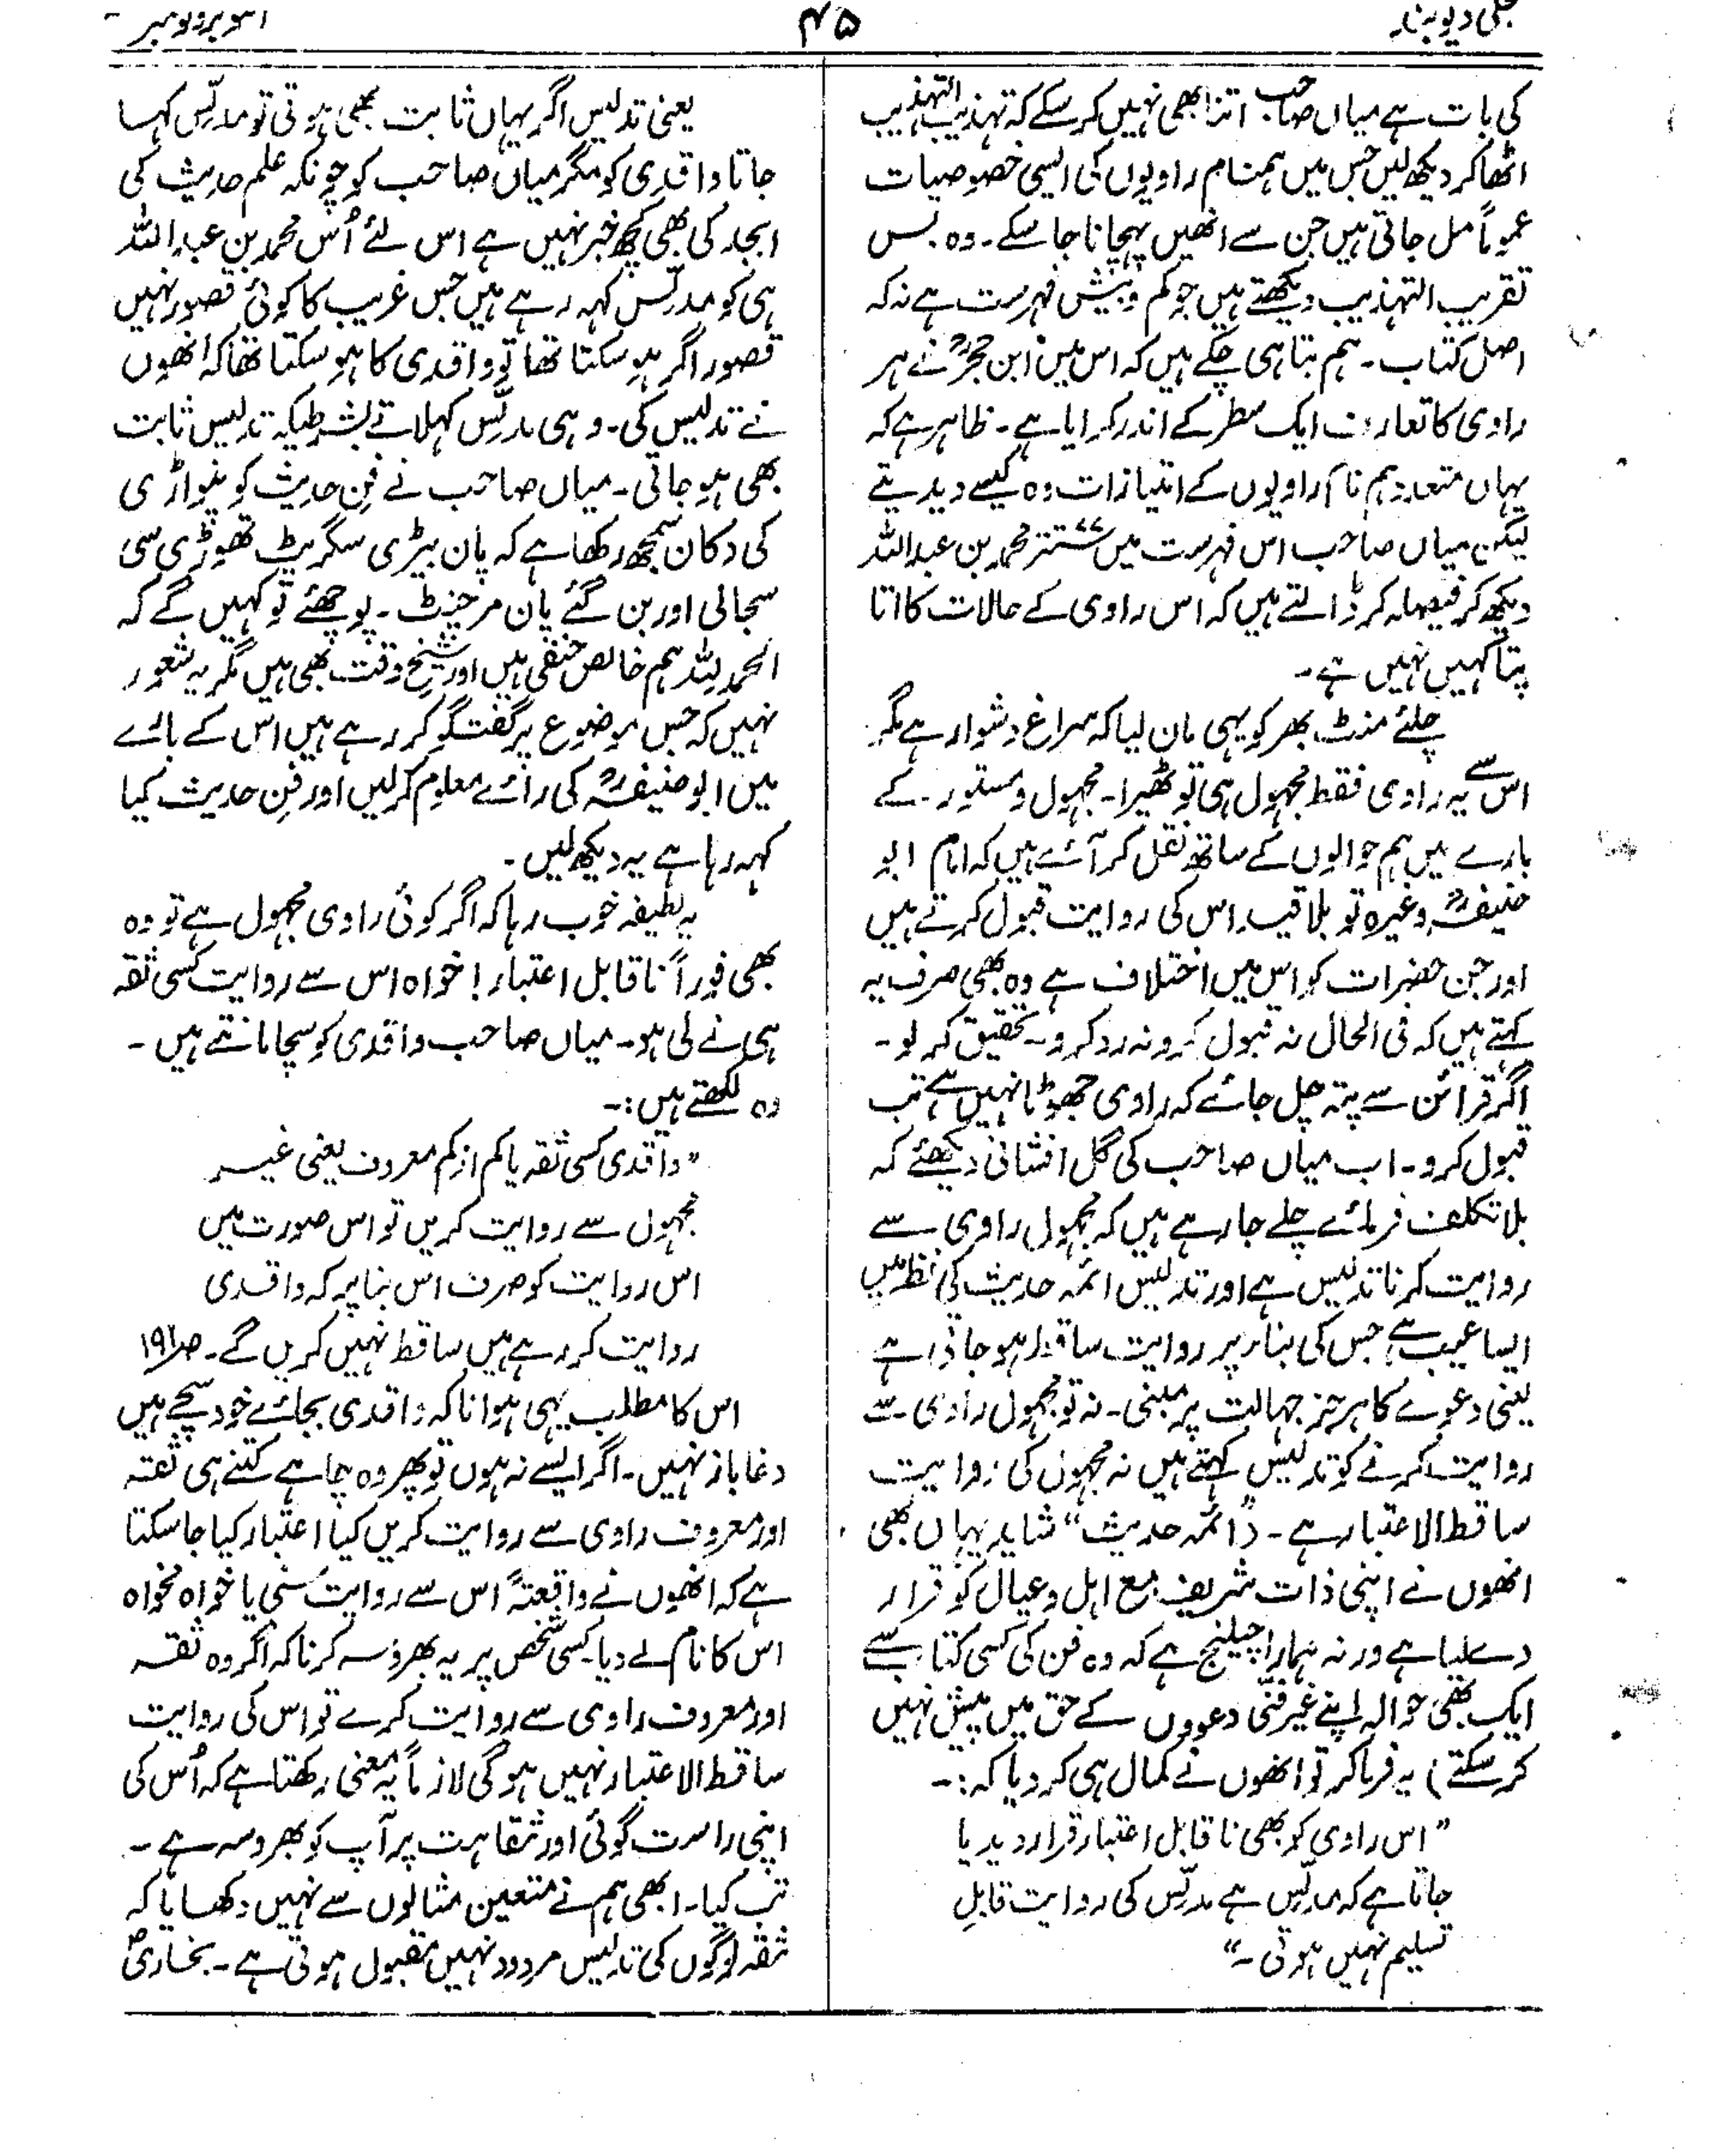 تجلی دیوبند
۴۵
اکتوبر و نومبر
کی بات ہے میاں صاحب اتنا بھی نہیں کر سکے کہ تہذیب التہذیب
اٹھا کر دیکھ لیں جس میں ہمنام راویوں کی ایسی خصوصیات
عموماً مل جاتی ہیں جن سے انھیں پہچانا جا سکے۔ وہ بس
تقریب التہذیب دیکھتے ہیں جو کم و بیش فہرست ہے نہ کہ
اصل کتاب۔ ہم بتا ہی چکے ہیں کہ اس میں ابن حجرؒ نے ہر
راوی کا تعارف ایک سطر کے اندر کرایا ہے۔ ظاہر ہے کہ
یہاں متعدد ہم نام راویوں کے امتیازات وہ کیسے دیدیتے
لیکن میاں صاحب اس فہرست میں ستتر محمد بن عبداللہ
دیکھ کر فیصلہ کر ڈالتے ہیں کہ اس راوی کے حالات کا اتا
پتا کہیں نہیں ہے۔
چلئے منٹ بھر کو یہی مان لیا کہ سراغ دشوار ہے مگر
اس سے یہ راوی فقط مجہول ہی تو ٹھیرا۔ مجہول و مستور کے
بارے میں ہم حوالوں کے ساتھ نقل کر آئے ہیں کہ امام ابو
حنیفہؒ وغیرہ تو بلا قید اس کی روایت قبول کرتے ہیں
اور جن حضرات کو اس میں اختلاف ہے وہ بھی صرف یہ
کہتے ہیں کہ فی الحال نہ قبول کرو نہ رد کرو۔ تحقیق کر لو۔
اگر قرائن سے پتہ چل جائے کہ راوی جھوٹا نہیں ہے تب
قبول کرو۔ اب میاں صاحب کی گل افشانی دیکھئے کہ
بلا تکلف فرمائے چلے جا رہے ہیں کہ مجہول راوی سے
روایت کرنا تدلیس ہے اور تدلیس ائمہ حدیث کی نظر میں
ایسا عیب ہے جس کی بناء پر روایت ساقط ہو جاتی ہے
یعنی دعوے کا ہر جز جہالت پر مبنی۔ نہ تو مجہول راوی سے
روایت کرنے کو تدلیس کہتے ہیں نہ مجہول کی روایت
ساقط الاعتبار ہے۔ ("ائمہ حدیث" شاید یہاں بھی
انھوں نے اپنی ذات شریف مع اہل و عیال کو قرار
دے لیا ہے ورنہ ہمارا چیلنج ہے کہ وہ فن کی کسی کتاب سے
ایک بھی حوالہ اپنے غیر فنّی دعووں کے حق میں پیش نہیں
کر سکتے) یہ فرما کر تو انھوں نے کمال ہی کر دیا کہ:۔
"اس راوی کو بھی ناقابل اعتبار قرار دیدیا
جاتا ہے کہ مدلّس ہے مدلّس کی روایت قابلِ
تسلیم نہیں ہوتی۔"
یعنی تدلیس اگر یہاں ثابت بھی ہوتی تو مدلّس کہا
جاتا واقدی کو مگر میاں صاحب کو چونکہ علم حدیث کی
ابجد کی بھی کچھ خبر نہیں ہے اس لئے اُس محمد بن عبداللہ
ہی کو مدلّس کہہ رہے ہیں جس غریب کا کوئی قصور نہیں
قصور اگر ہو سکتا تھا تو واقدی کا ہو سکتا تھا کہ انھوں
نے تدلیس کی۔ وہی مدلّس کہلاتے بشرطیکہ تدلیس ثابت
بھی ہو جاتی۔ میاں صاحب نے فن حدیث کو پنواڑی
کی دکان سمجھ رکھا ہے کہ پان بیڑی سگریٹ تھوڑی سی
سجالی اور بن گئے پان مرچنٹ۔ پوچھئے تو کہیں گے کہ
الحمد للہ ہم خالص حنفی ہیں اور شیخ وقت بھی ہیں مگر یہ شعور
نہیں کہ جس موضوع پر گفتگو کر رہے ہیں اس کے بارے
میں ابو حنیفہؒ کی رائے معلوم کر لیں اور فن حدیث کیا
کہہ رہا ہے یہ دیکھ لیں۔
یہ لطیفہ خوب رہا کہ اگر کوئی راوی مجہول ہے تو وہ
بھی فوراً ناقابل اعتبار! خواہ اس سے روایت کسی ثقہ
ہی نے لی ہو۔ میاں صاحب واقدی کو سچا مانتے ہیں۔
وہ لکھتے ہیں:۔
"واقدی کسی ثقہ یا کم از کم معروف یعنی غیر
مجہول سے روایت کریں تو اس صورت میں
اس روایت کو صرف اس بنا پر کہ واقدی
روایت کر رہے ہیں ساقط نہیں کریں گے۔ ص۱۹۱
اس کا مطلب یہی ہوا نا کہ واقدی بجائے خود سچے ہیں
دغاباز نہیں۔ اگر ایسے نہ ہوں تو پھر وہ چاہے کتنے ہی ثقہ
اور معروف راوی سے روایت کریں کیا اعتبار کیا جا سکتا
ہے کہ انھوں نے واقعتہً اس سے روایت سُنی یا خواہ مخواہ
اس کا نام لے دیا۔ کسی شخص پر یہ بھروسہ کرنا کہ اگر وہ ثقہ
اور معروف راوی سے روایت کرے تو اس کی روایت
ساقط الاعتبار نہیں ہو گی لازماً یہ معنی رکھتا ہے کہ اُس کی
اپنی راست گوئی اور ثقاہت پر آپ کو بھروسہ ہے۔
تب کیا۔ ابھی ہم نے متعین مثالوں سے نہیں دکھایا کہ
ثقہ لوگوں کی تدلیس مردود نہیں مقبول ہوتی ہے۔ بخاریؒ